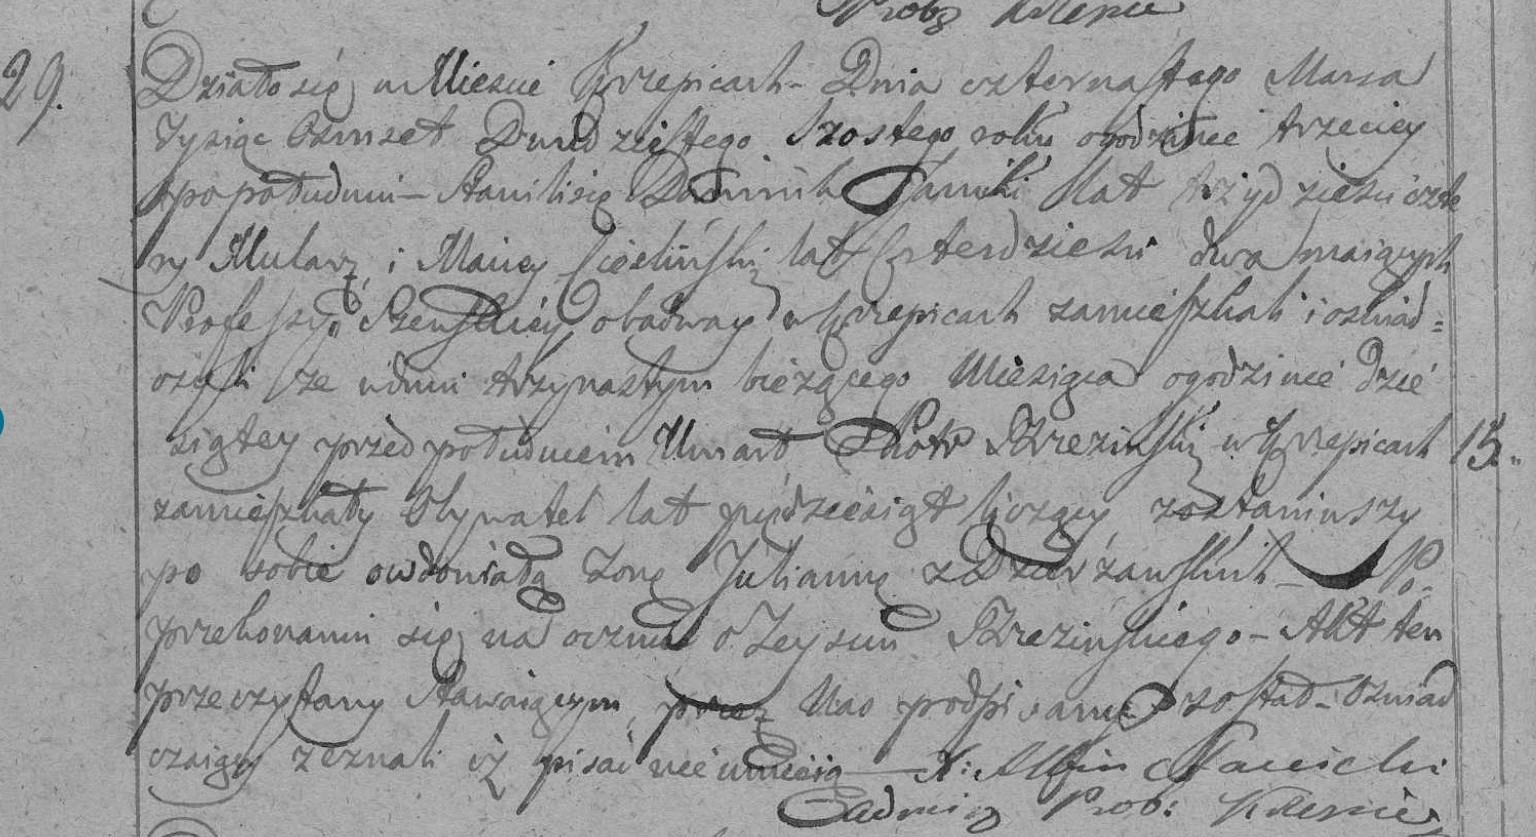 Prob: Krzepic
29. Działo się w Mieście Krzepicach – Dnia czternastego Marca
Tysiąc Osmset Dwudziestego Szostego roku ogodzinie trzeciey
spopołudniu – Stawili się Dominik lat trzydzieści czte
ry Mularz i Maciey Cieśliński lat Czterdzieści dwa maiących
Professyi Szewskiey obadway w Krzepicach zamieszkali i oświad=
czyli że wdniu trzynastym bieżącego Miesiąca ogodzinie Dzie
siątey przed południem Umarł Piotr w Krzepicach 15.
zamieszkały Obywatel lat pięćdziesiąt liczący zostawiwszy
po sobie owdowiałą żonę Juliannę z – Po=
przekonaniu się na ocznie o Zeysciu – Akt ten
przeczytany Stawaiącym, przez Nas podpisany został – Oświad
czaiący zeznali iż pisać nie umieią — X: Albin
Prob: Krzepic